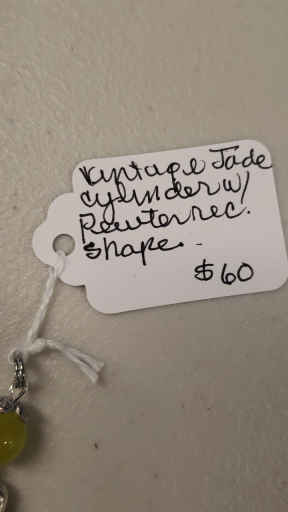 Vintage Jade
cylinder w/
Pewter rec.
shape. -
$60